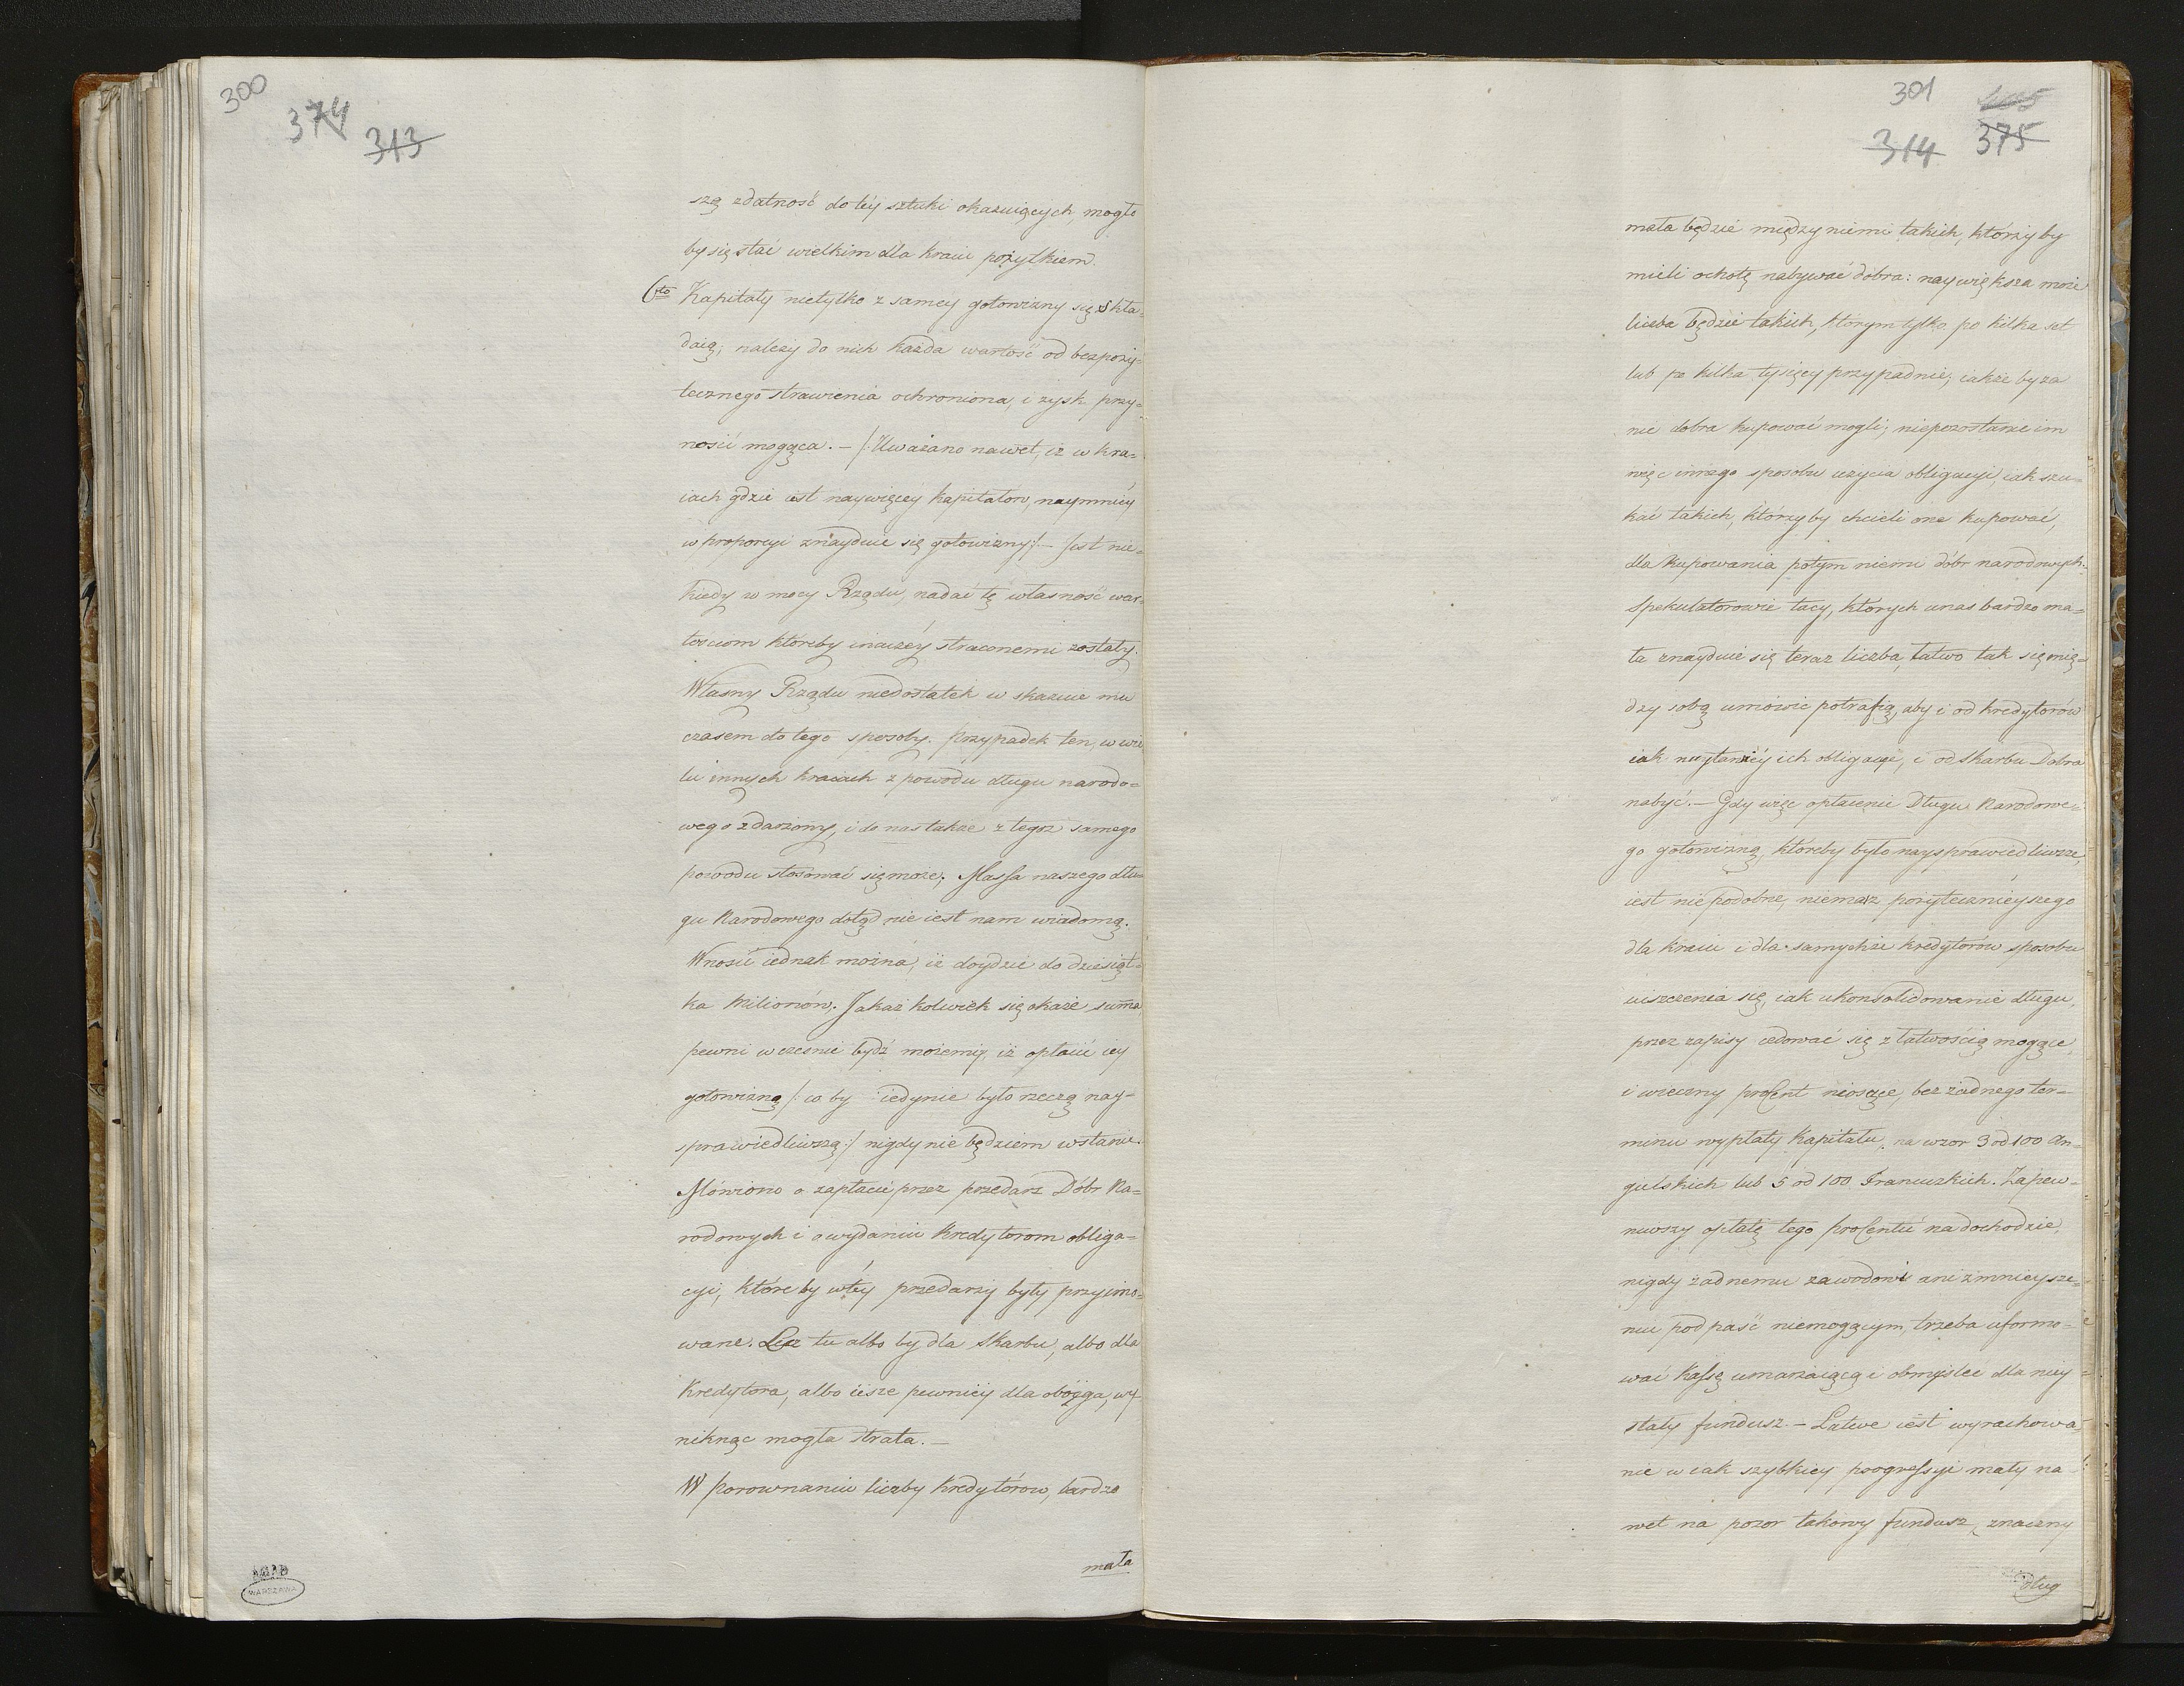 300
374
313
szą zdatność do téy sztuki okazuiących, mogło
by się stać wielkim dla kraiu pożytkiem.
6to Kapitały nietylko z saméy gotowizny się skła-
daią; należy do nich każda wartość od bezpoży-
tecznego strawienia ochroniona, i zysk przy-
nosić mogąca. - /: Uważano nawet, iż w kra-
iach gdzie iest naywięcéy kapitałow, naymniéy
w proporcyi znayduie się gotowizny :/ - Jest nie-
kiedy w mocy Rządu, nadać tę własność war-
tościom któreby inaczéy straconemi zostały.
Własny Rządu niedostatek w skazuie mu
czasem do tego sposoby. Przypadek ten, w wie
lu innych kraiach z powodu długu narodo-
wego zdarzony, i do nas także z tegoż samego
powodu stosować się może; Massa naszego dłu-
gu Narodowego dotąd nie iest nam wiadomą.
Wnosić iednak można, iż doydzie do dziesiąt-
ka Milionów. Jakaż kolwiek się okaże summa
pewni wcześnie bydź możemy, iż opłacić iey
gotowizną /: co by iedynie było rzeczą nay-
sprawiedliwszą :/ nigdy nie będziem wstanie.
Mówiono o zapłacie przez przedarz Dóbr Na-
rodowych i o wydaniu Kredytorom obliga-
cyi, które by w téy przedarzy były przyimo-
wane. Lecz tu albo by dla Skarbu, albo dla
Kredytora, albo ieszcze pewniéy dla oboyga, wy-
niknąc mogła strata. -
W porownaniu liczby Kredytórow, bardzo
mała
AGAD
WARSZAWA
301
375
314
mała będzie między niemi takich, którzy by
mieli ochotę nabywać dobra: naywiększa może
liczba będzie takich, którym tylko po kilka set
lub po kilka tysięcy przypadnie; iakże by za
nie dobra kupować mogli; niepozostanie im
więc innego sposobu użycia obligacyi, iak szu-
kać takich, którzy by chcieli one kupować,
dla kupowania potym niemi dóbr narodowych.
Spekulatorowie tacy, których u nas bardzo ma-
ła znayduie się teraz liczba, łatwo tak się mię-
dzy sobą umówic potrafią, aby i od kredytorów
iak naytaniéy ich obligacye, i od Skarbu Dobra
nabyć. - Gdy więc opłacenie Długu Narodowe-
go gotowizną, któreby było naysprawiedliwsze,
iest niepodobne, niemasz pożytecznieyszego
dla kraiu i dla samychże kredytorów sposobu
uiszczenia się, iak ukonsolidowanie długu,
przez zapisy cedować się z łatwością mogące,
i wieczny procent niosące, bez żadnego ter-
minu wypłaty Kapitału, na wzor 3 od 100 An-
gielskich lub 5 od 100 Francuzkich. Zapew-
niwszy opłatę tego procentu na dochodzie,
nigdy żadnemu zawodowi ani zmnieysze-
niu pod paść niemogącym, trzeba uformo-
wać Kassę umarzaiącą i obmyślec dla niey
stały fundusz. - Łatwe iest wyrachowa-
nie w iak szybkiey progressyi mały na
wet na pozor takowy fundusz, znaczny
dług